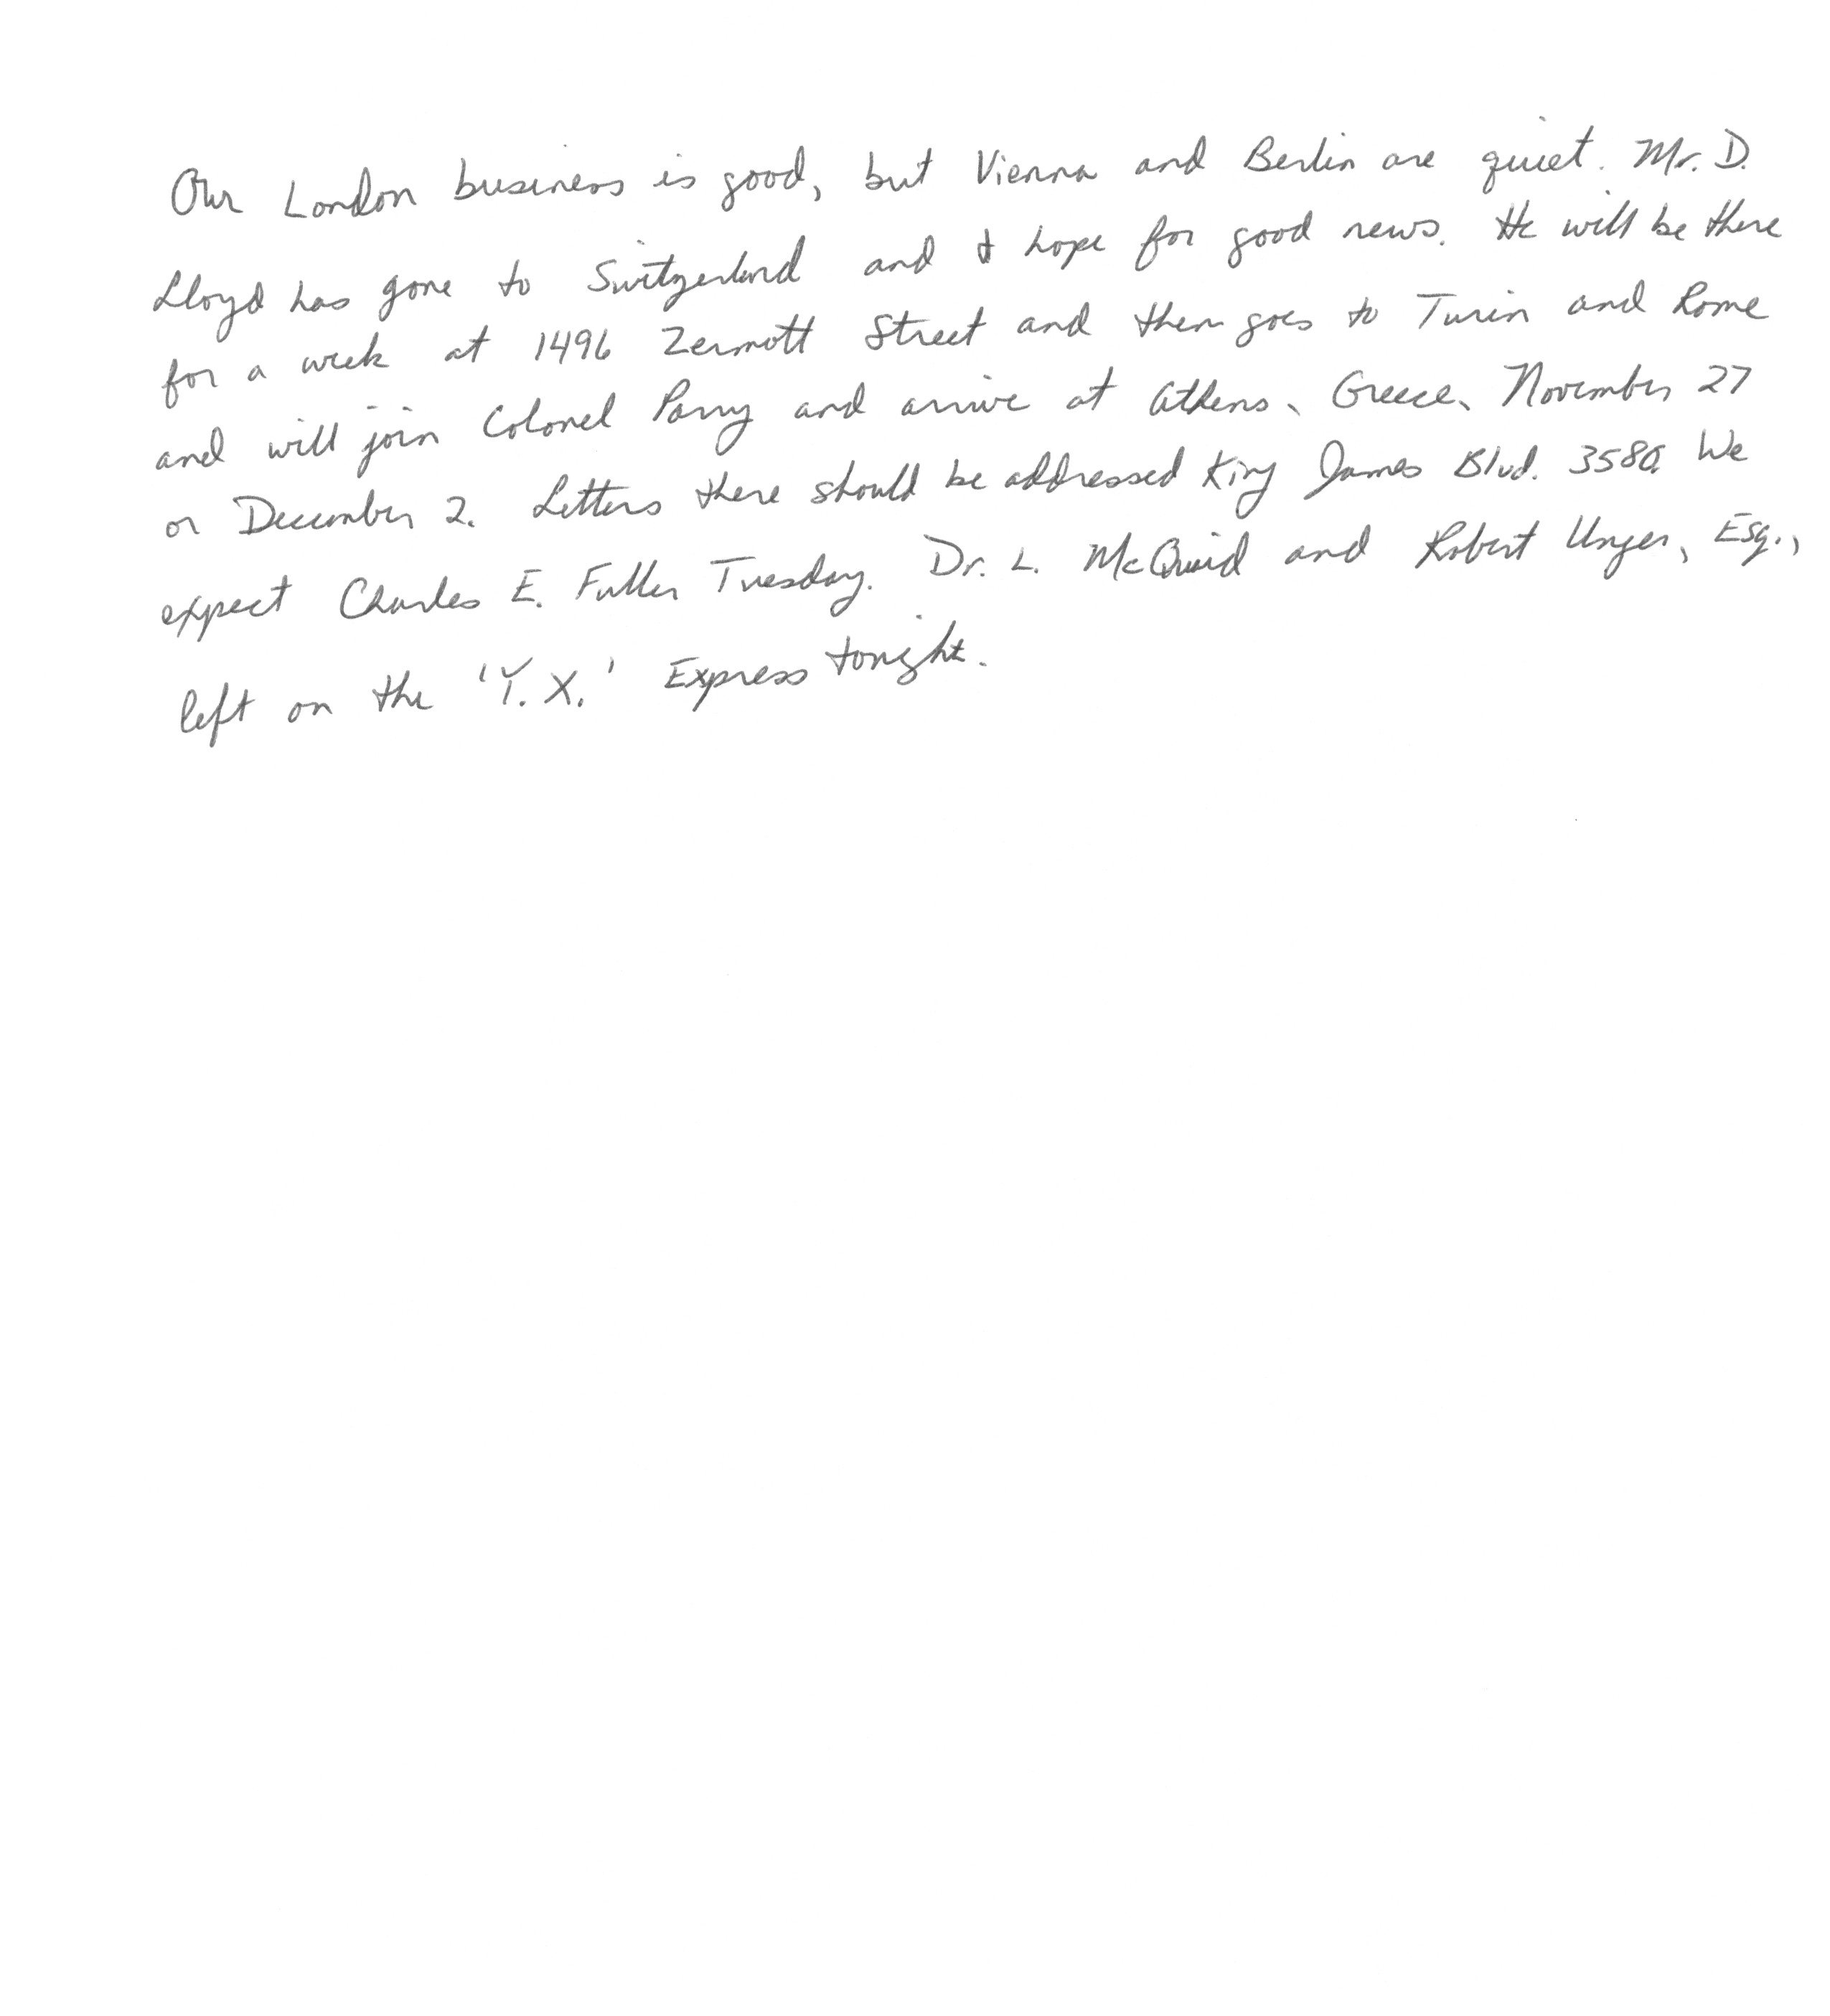 Our London business is good, but Vienna and Berlin are quiet. Mr. D.
Lloyd has gone to Switzerland and I hope for good news. He will be there
for a week at 1496 Zermott Street and then goes to Turin and Rome
and will join Colonel Parry and arrive at Athens, Greece, November 27
or December 2. Letters there should be addressed King James Blvd. 3580. We
expect Charles E. Fuller Tuesday. Dr. L. McQuaid and Robert Unger, Esq.,
left on the 'Y.X.' Express tonight.